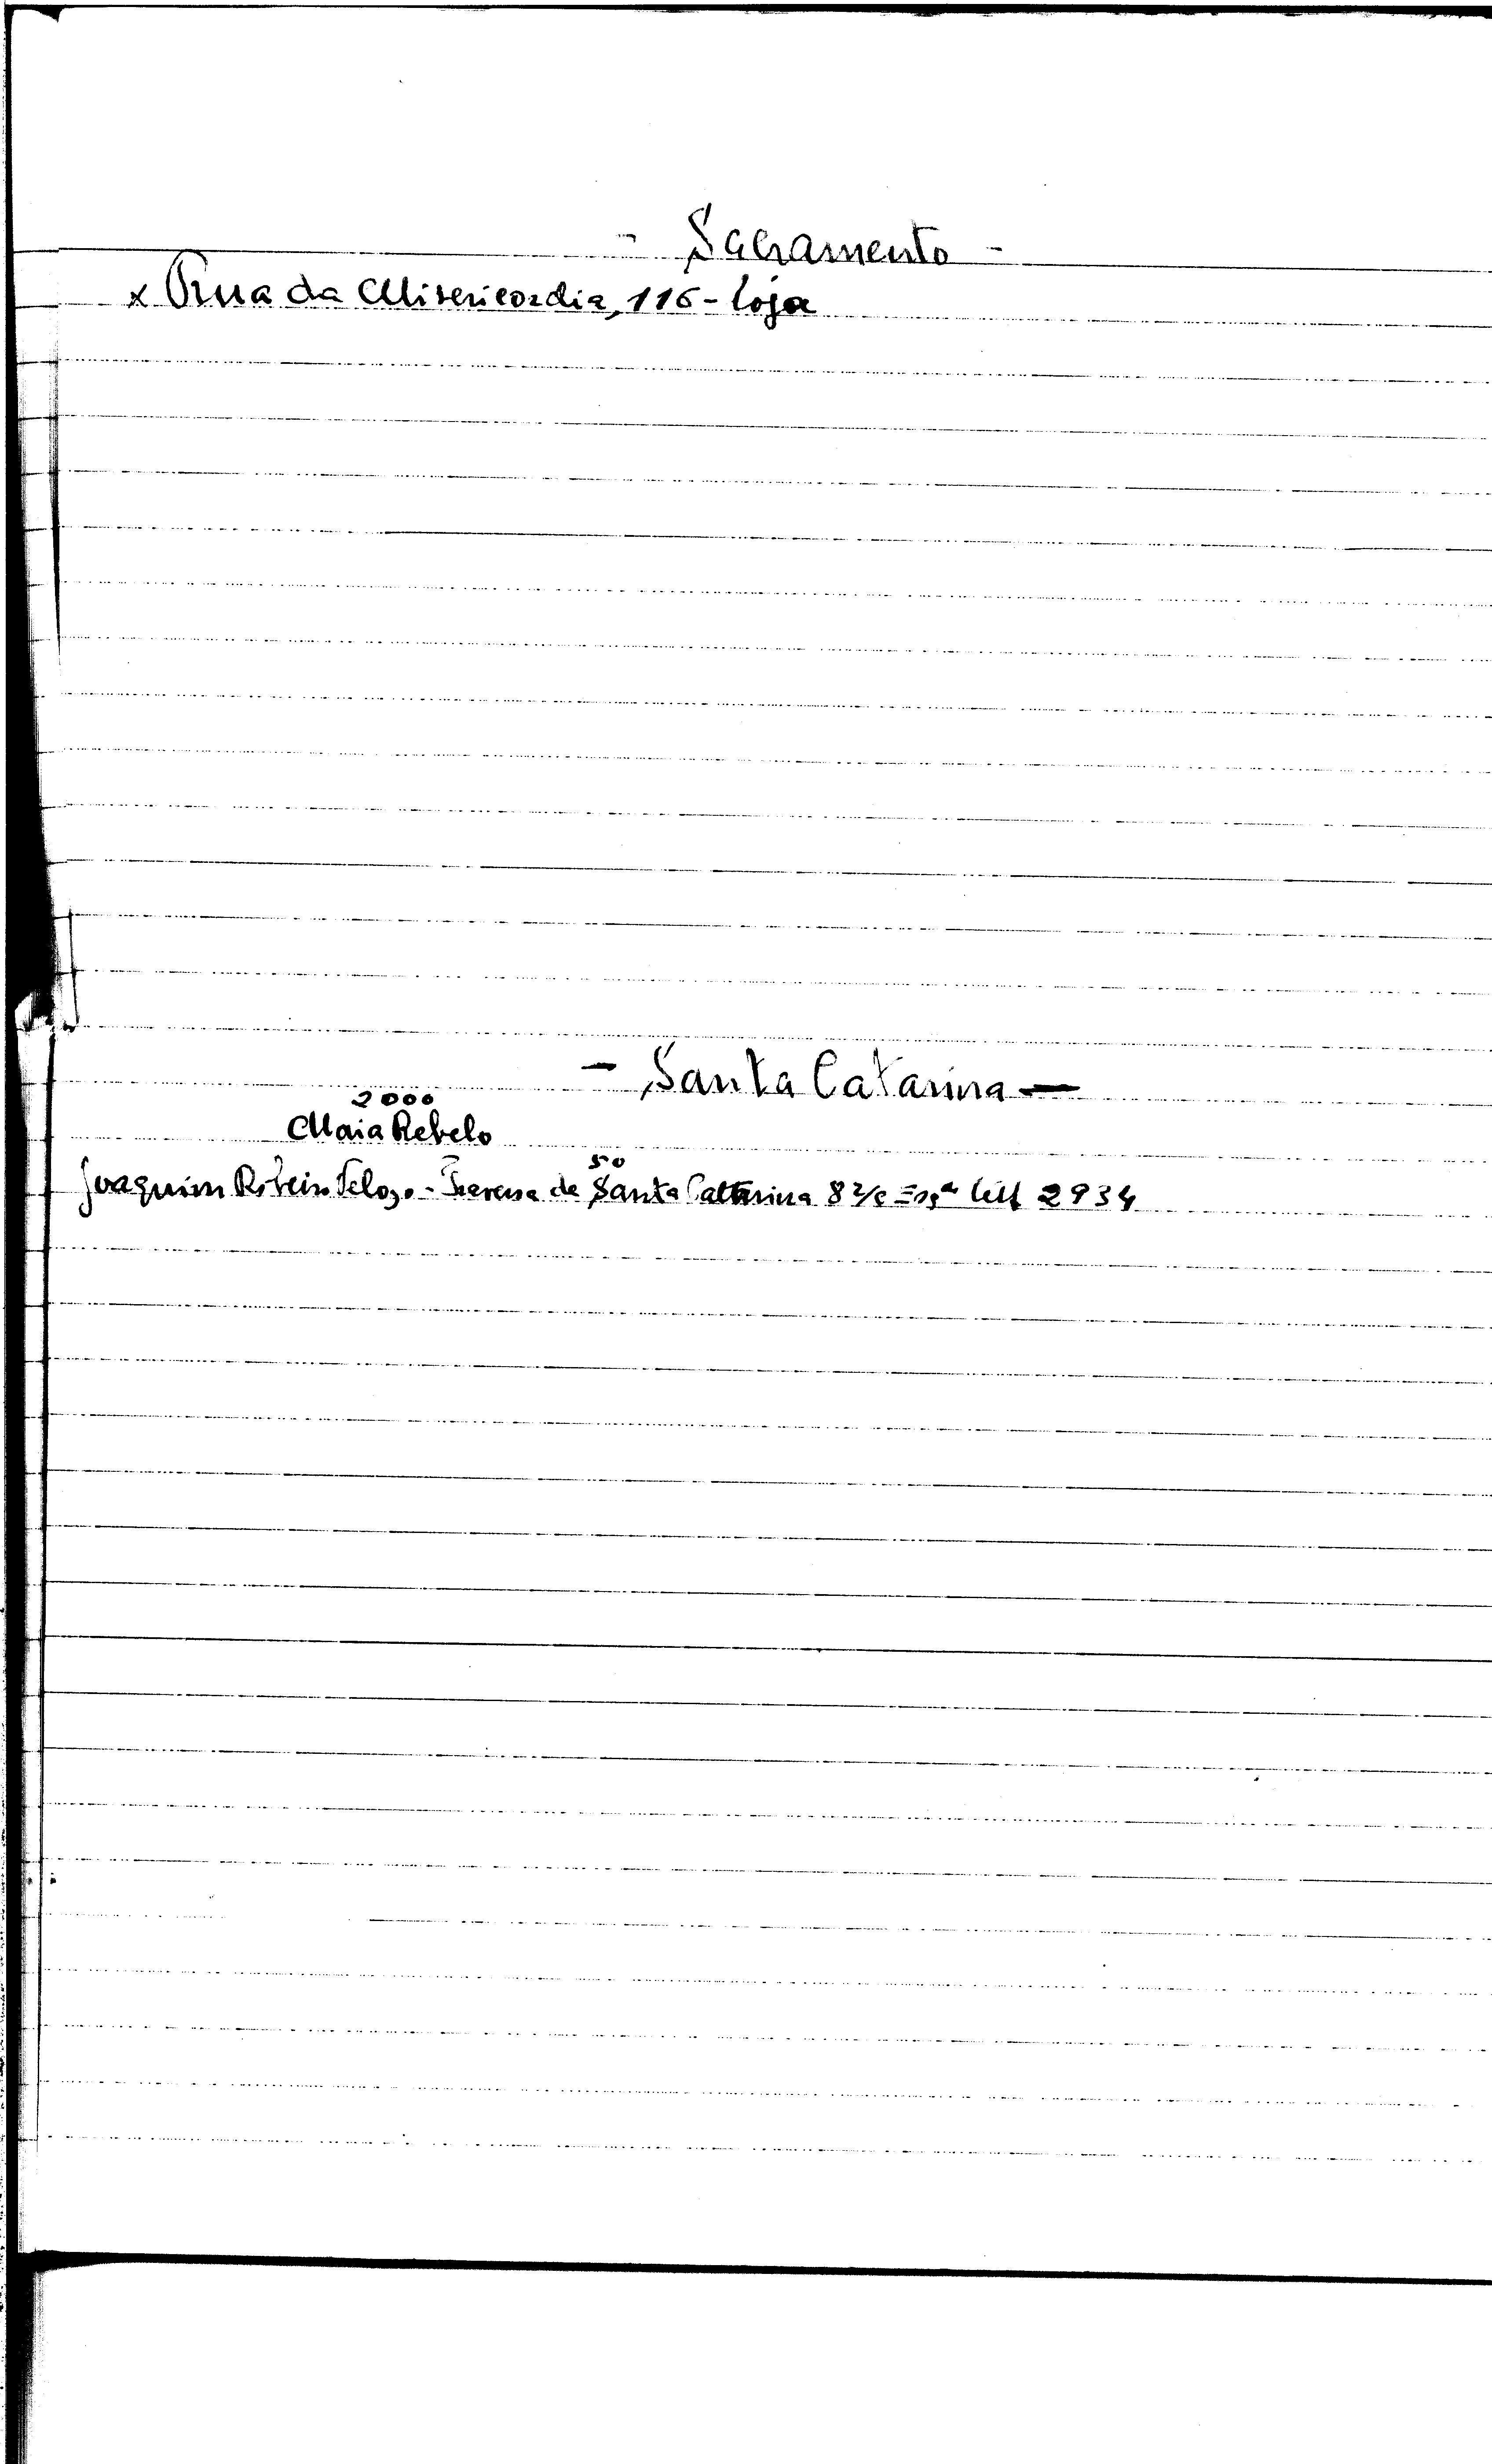 - Sacramento -
x Rua da Misericordia, 116 - loja
- Santa Catarina -
2000
Maia Rebelo
50
Joaquim Ribeiro Veloso - Travessa de Santa Catterina 8 2/c Esqª 2934